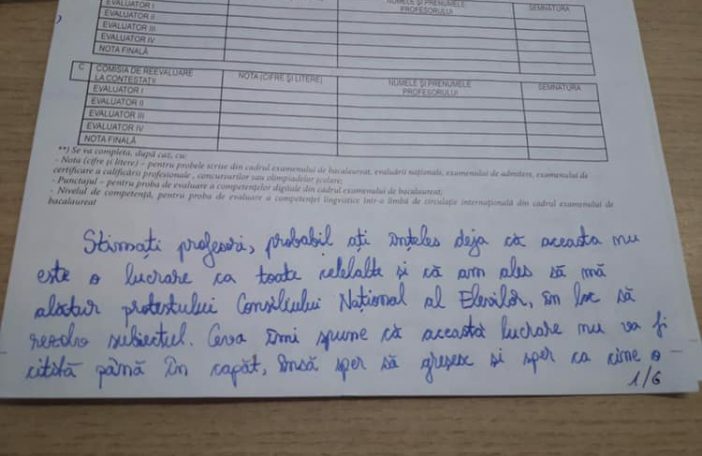 EVALUATOR I
EVALUATOR II
EVALUATOR III
EVALUATOR IV
NOTA FINALĂ
NUMELE ȘI PRENUMELE
PROFESORULUI
SEMNĂTURA
C COMISIA DE REEVALUARE LA CONTESTAȚII NOTA (CIFRE ȘI LITERE) NUMELE ȘI PRENUMELE PROFESORULUI SEMNĂTURA
EVALUATOR I
EVALUATOR II
EVALUATOR III
EVALUATOR IV
NOTA FINALĂ
**) Se va completa, după caz, cu:
- Nota (cifre și litere) – pentru probele scrise din cadrul examenului de bacalaureat, evaluării naționale, examenului de admitere, examenului de
certificare a calificării profesionale , concursurilor sau olimpiadelor școlare;
- Punctajul – pentru proba de evaluare a competențelor digitale din cadrul examenului de bacalaureat;
- Nivelul de competență, pentru proba de evaluare a competenței lingvistice într-o limbă de circulație internațională din cadrul examenului de
bacalaureat
Stimați profesori, probabil ați înțeles deja că aceasta nu
este o lucrare ca toate celelalte și că am ales să mă
alătur protestului Consiliului Național al Elevilor, în loc să
rezolv subiectul. Ceva îmi spune că această lucrare nu va fi
citită până în capăt, însă sper să greșesc și sper ca cine o
1/6